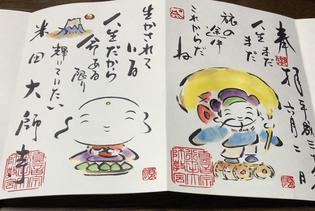 奉拝 平成三十
六月二日
人生まだ
まだ
旅の途中
これからだ
ね
生かされて
いる
人生だから
命ある限り
輝いていたい
米田大師